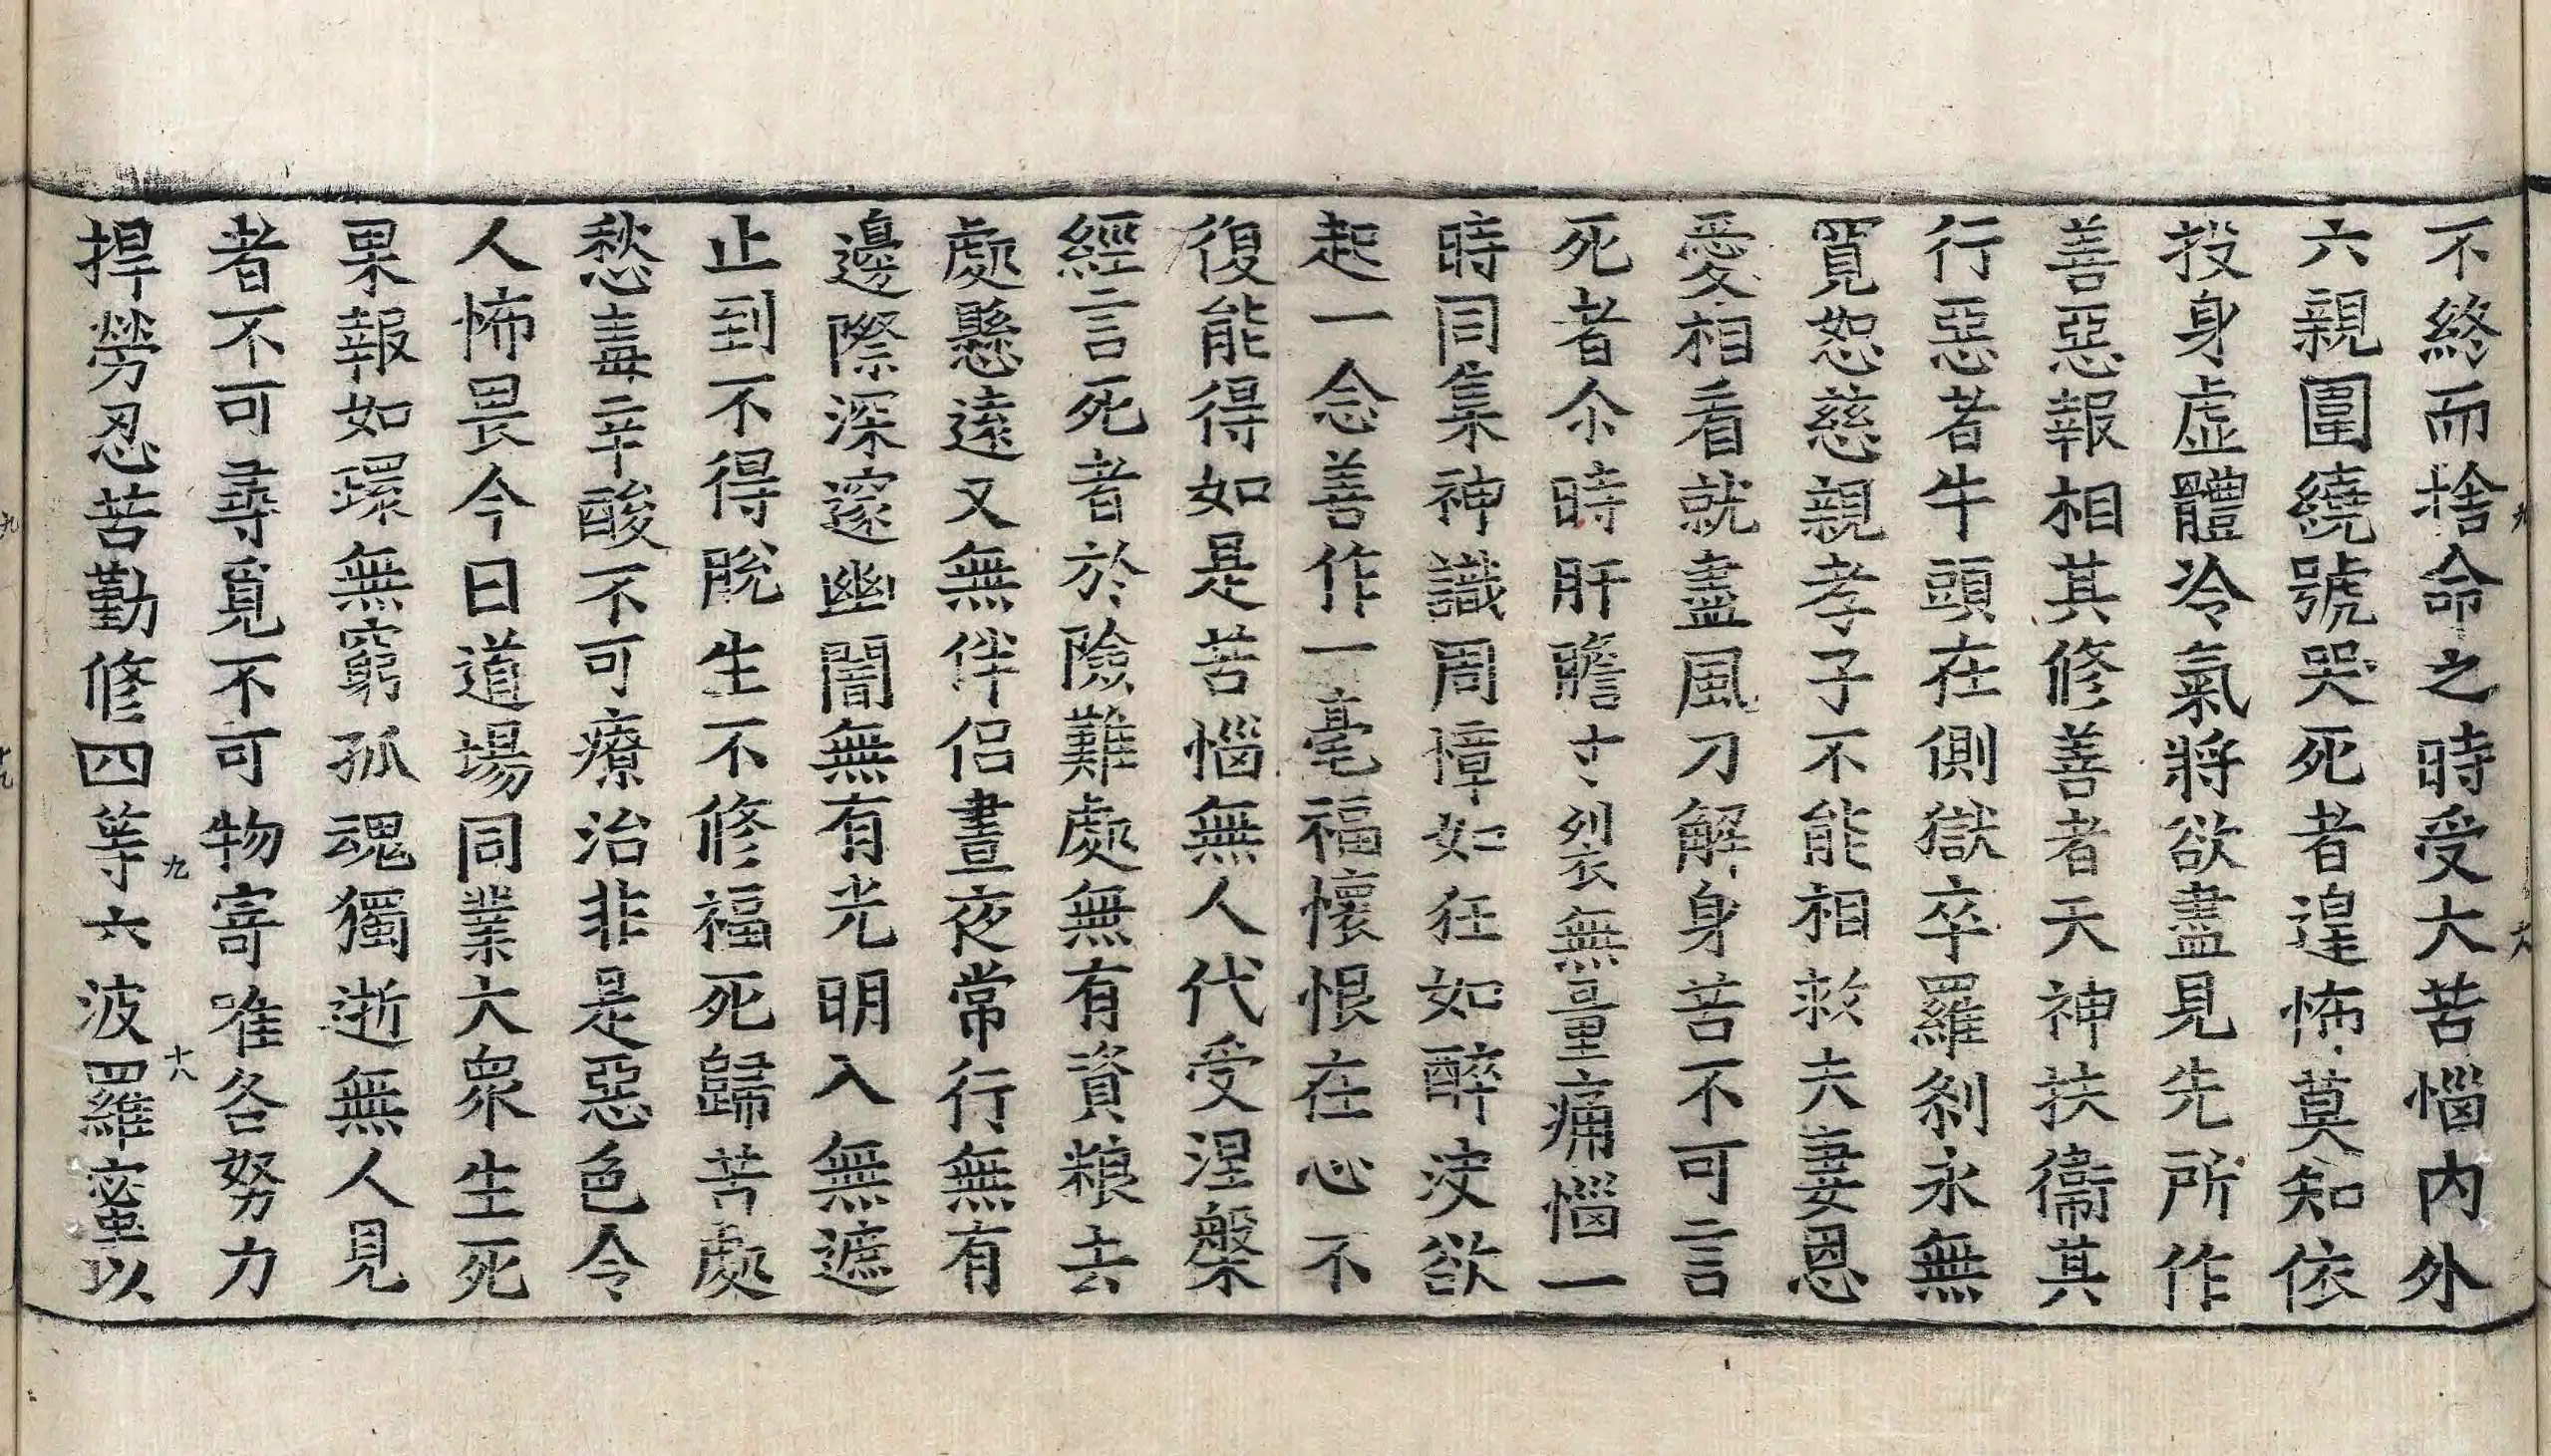 不終而捨命之時受大苦惱內外
六親圍繞號哭死者遑怖莫知依
投身虛體冷氣將欲盡見先所作
善惡報相其修善者天神扶衞其
行惡者牛頭在側獄卒羅剎永無
寬恕慈親孝子不能相救夫妻恩
愛相看就盡風刀解身苦不可言
死者尒時肝膽寸寸裂無量痛惱一
時同集神識周慞如狂如醉㳏欲
起一念善作一毫福懷恨在心不
復能得如是苦惱無人代受涅槃
經言死者於險難處無有資粮去
處懸遠又無伴侶晝夜常行無有
邊際深邃幽闇無有光明入無遮
止到不得脫生不修福死歸苦處
愁毒辛酸不可療治非是惡色令
人怖畏今日道場同業大衆生死
果報如環無窮孤魂獨逝無人見
者不可尋覓不可物寄唯各努力
捍勞忍苦勤修四等六波羅蜜以
九
十八